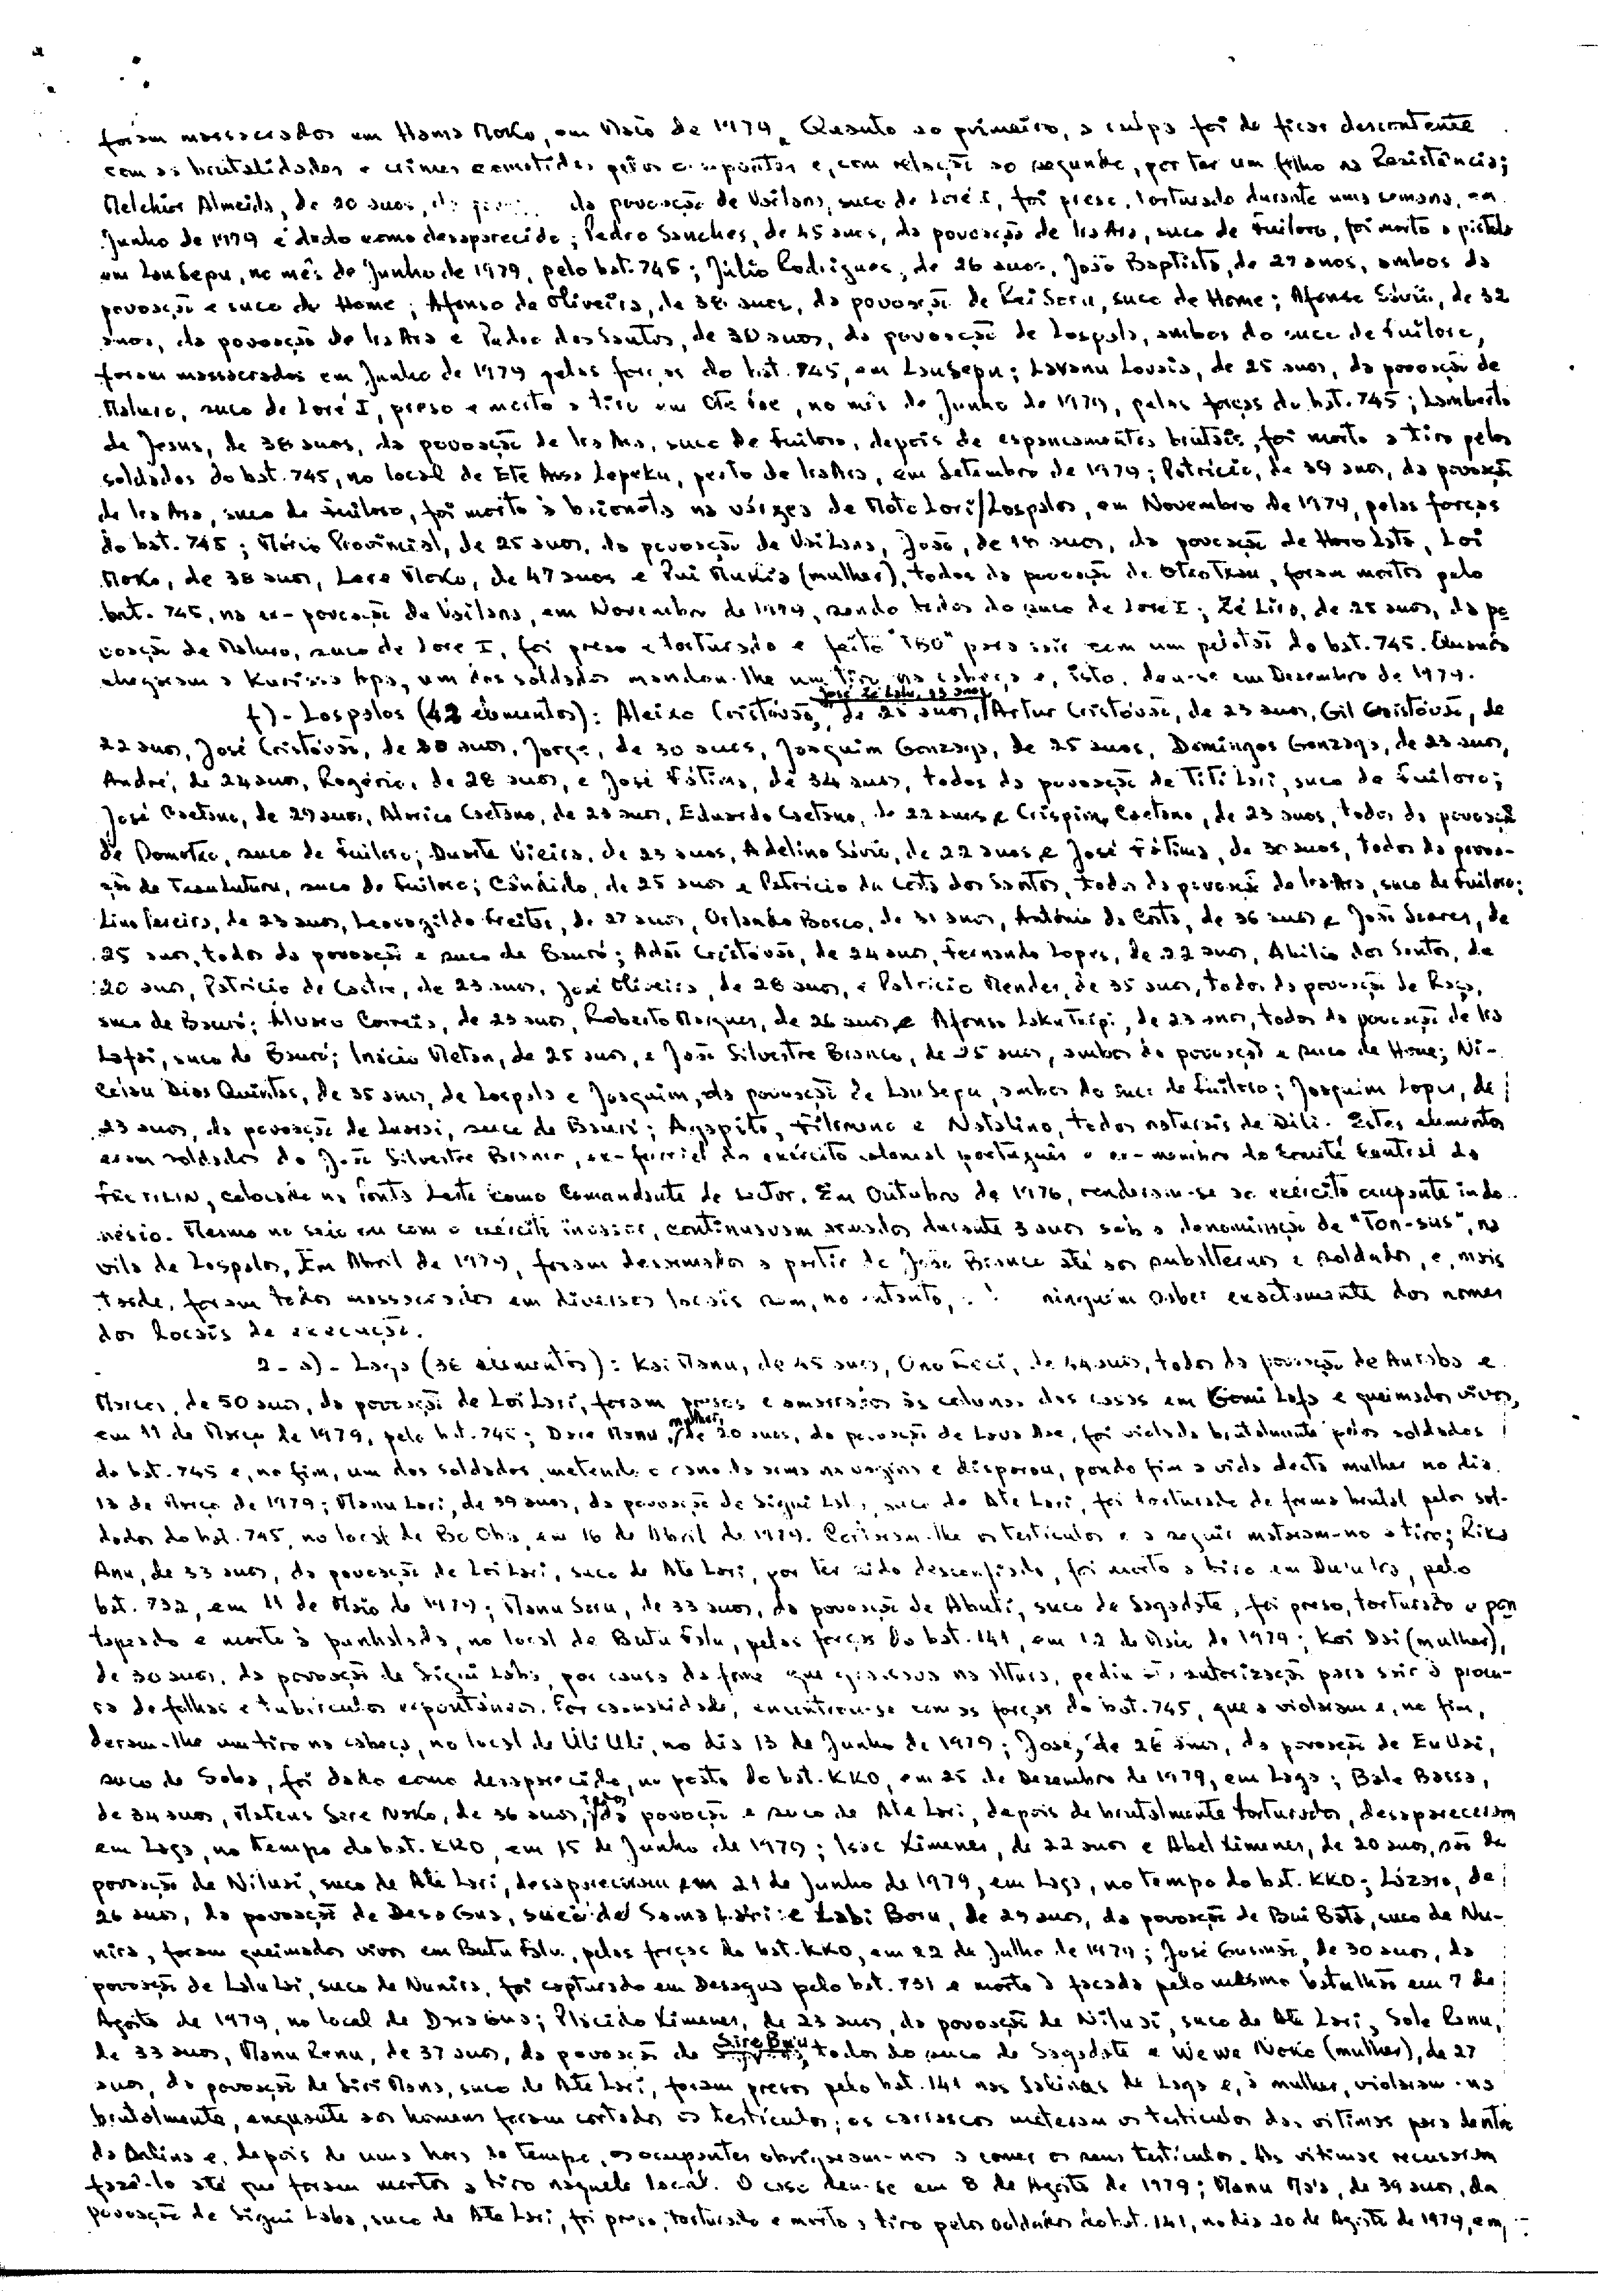 foram massacrados em Hama Moko, em Maio de 1979. Quanto ao primeiro, a culpa foi de ficar descontente
com as brutalidades e crimes cometidos pelos ocupantes e, com relação ao segundo, por ter um filho na Resistência;
Melchior Almeida, de 20 anos, da povoação de Vailana, suco de Loré I, foi preso, torturado durante uma semana, em
Junho de 1979 e dado como desaparecido; Pedro Sanches, de 45 anos, da povoação de Ira Ara, suco de Fuiloro, foi morto a pistola
em Lausepu, no mês de Junho de 1979, pelo bat. 745; Júlio Rodrigues, de 26 anos, João Baptista, de 27 anos, ambos da
povoação e suco de Home; Afonso de Oliveira, de 38 anos, da povoação de Rei Seru, suco de Home; Afonso Sávio, de 32
anos, da povoação de Ira Ara e Pedro dos Santos, de 30 anos, da povoação de Lospalo, ambos do suco de Fuiloro,
foram massacrados em Junho de 1979 pelas forças do bat. 745, em Lausepu; Lavanu Lovaia, de 25 anos, da povoação de
Maluro, suco de Loré I, preso e morto a tiro em, no mês de Junho de 1979, pelas forças do bat. 745; Lamberto
de Jesus, de 38 anos, da povoação de Ira Ara, suco de Fuiloro, depois de espancamentos brutais, foi morto a tiro pelos
soldados do bat. 745, no local de Ete Ausa Lepeku, perto de Ira Ara, em Setembro de 1979; Patrício, de 39 anos, da povoação
de Ira Ara, suco de Fuiloro, foi morto à baioneta na várzea de Moto Lori/Lospalos, em Novembro de 1979, pelas forças
do bat. 745; Mário Provincial, de 25 anos, da povoação de Vailana, João, de 18 anos, da povoação de Horo Lata, Loi
Moko, de 38 anos, Lere Moko, de 47 anos e Pui Mukia (mulher), todos da povoação de, foram mortos pelo
bat. 745, na ex-povoação de Vailana, em Novembro de 1979, sendo todos do suco de Loré I; Zé Liro, de 25 anos, da po
voação de Maluro, suco de Lore I, foi preso e torturado e feito "TBO" para sair com um pelotão do bat. 745. Quando
chegaram a Kurissa Apa, um dos soldados mandou-lhe um tiro na cabeça e, isto, deu-se em Dezembro de 1979.
José Zé Lalu, 23 anos
f) - Lospalos (42 elementos): Aleixo Cristóvão, de 25 anos, Artur Cristóvão, de 23 anos, Gil Cristóvão, de
22 anos, José Cristóvão, de 20 anos, Jorge, de 30 anos, Joaquim Gonzaga, de 25 anos, Domingos Gonzaga, de 23 anos,
André, de 24 anos, Rogério, de 28 anos, e José Fátima, de 34 anos, todos da povoação de Titi Lari, suco de Fuiloro;
José Caetano, de 29 anos, Alarico Caetano, de 23 anos, Eduardo Caetano, de 22 anos e Crispim Caetano, de 23 anos, todos da povoação
de Domotxo, suco de Fuiloro; Duarte Vieira, de 23 anos, Adelino Sávio, de 22 anos e José Fátima, de 30 anos, todos da povoa-
ção de, suco de Fuiloro; Cândido, de 25 anos e Patrício da Costa dos Santos, todos da povoação de Ira Ara, suco de Fuiloro;
Lino Pereira, de 23 anos, Leovogildo Freitas, de 27 anos, Orlando Bosco, de 31 anos, António da Costa, de 36 anos e João Soares, de
25 anos, todos da povoação e suco de Bauró; Adão Cristóvão, de 24 anos, Fernando Lopes, de 22 anos, Abílio dos Santos, de
20 anos, Patrício de Castro, de 23 anos, José Oliveira, de 28 anos, e Patrício Mendes, de 35 anos, todos da povoação de Raça,
suco de Bauró; Álvaro Correia, de 23 anos, Roberto Marques, de 26 anos e Afonso Laku Tuipi, de 23 anos, todos da povoação de Ira
Lafai, suco de Bauró; Inácio Metan, de 25 anos, e João Silvestre Branco, de 35 anos, ambos da povoação e suco de Home; Ni-
colau Dias Quintas, de 35 anos, de Lospalo e Joaquim, da povoação de Lausepu, ambos do suco de Fuiloro; Joaquim Lopes, de
23 anos, da povoação de Luarai, suco de Bauró; Agapito, Filomeno e Natalino, todos naturais de Dili. Estes elementos
eram soldados do João Silvestre Branco, ex-furriel do exército colonial português e ex-membro do Comité Central da
FRETILIN, colocado na Ponta Leste como Comandante de sector. Em Outubro de 1976, renderam-se ao exército ocupante indo-
nésio. Mesmo no seio ou com o exército invasor, continuavam armados durante 3 anos sob a denominação de "Ton-sus", na
vila de Lospalos. Em Abril de 1979, foram desarmados a partir de João Branco até aos subalternos e soldados, e, mais
tarde, foram todos massacrados em diversos locais sem, no entanto, ninguém saber exactamente dos nomes
dos locais de execução.
2 - a) - Laga (36 elementos): Kai Manu, de 45 anos, Ono Reci, de 44 anos, todos da povoação de Auraba e
Marcos, de 50 anos, da povoação de Loilari, foram presos e amarrados às colunas das casas em Gomi Lafa e queimados vivos,
em 11 de Março de 1979, pelo bat. 745; Dara Manu, mulher, de 20 anos, da povoação de Lava Aae, foi violada brutalmente pelos soldados
do bat. 745 e, no fim, um dos soldados, metendo o cano da arma na vagina e disparou, pondo fim a vida desta mulher no dia
13 de Março de 1979; Manu Lari, de 39 anos, da povoação de Sigui Laba, suco de Ate Lari, foi torturado de forma brutal pelos sol-
dados do bat. 745, no local de Be Oha, em 16 de Abril de 1979. Cortaram-lhe os testículos e a seguir mataram-no a tiro; Riko
Anu, de 33 anos, da povoação de Loi Lari, suco de Ate Lari, por ter sido desconfiado, foi morto a tiro em Du'u Ira, pelo
bat. 732, em 11 de Maio de 1979; Manu Seru, de 33 anos, da povoação de Abuti, suco de Sagadate, foi preso, torturado e pon
tapeado e morto à punhalada, no local de Butu Falu, pelas forças do bat. 141, em 12 de Maio de 1979; Koi Dai (mulher),
de 30 anos, da povoação de Sigui Laba, por causa da fome que grassava na altura, pediu autorização para sair à procu-
ra de folhas e tubérculos espontâneos. Por casualidade, encontrou-se com as forças do bat. 745, que a violaram e, no fim,
deram-lhe um tiro na cabeça, no local de Uli Uli, no dia 13 de Junho de 1979; José, de 26 anos, da povoação de Eu Uai,
suco de Soba, foi dado como desaparecido, no posto do bat. KKO, em 25 de Dezembro de 1979, em Laga; Bale Bassa,
de 34 anos, Mateus Sere Noko, de 36 anos, todos da povoação e suco de Ate Lari, depois de brutalmente torturados, desapareceram
em Laga, no tempo do bat. KKO, em 15 de Junho de 1979; Isac Ximenes, de 22 anos e Abel Ximenes, de 20 anos, são da
povoação de Nilusi, suco de Ate Lari, desapareceram em 21 de Junho de 1979, em Laga, no tempo do bat. KKO; Lázaro, de
26 anos, da povoação de Desa Gua, suco de Soma Lari e Labi Boru, de 29 anos, da povoação de Bui Bata, suco de Nu-
nira, foram queimados vivos em Butu Falu, pelas forças do bat. KKO, em 22 de Julho de 1979; José Gusmão, de 30 anos, da
povoação de Lalu Lai, suco de Nunira, foi capturado em Desagua pelo bat. 731 e morto à facada pelo mesmo batalhão em 7 de
Agosto de 1979, no local de Dara Gua; Plácido Ximenes, de 23 anos, da povoação de Nilusi, suco de Ate Lari, Sole Ranu,
de 33 anos, Manu Renu, de 37 anos, da povoação de Sire Bu'u, todos do suco de Sagadate e Wewe Noko (mulher), de 27
anos, da povoação de Siri Mana, suco de Ate Lari, foram presos pelo bat. 141 nas Salinas de Laga e, à mulher, violaram-na
brutalmente, enquanto aos homens foram cortados os testículos; os carrascos meteram os testículos das vítimas para dentro
da Salina e, depois de uma hora de tempo, os ocupantes obrigaram-nos a comer os seus testículos. As vítimas recusaram
fazê-lo até que foram mortos a tiro naquele local. O caso deu-se em 8 de Agosto de 1979; Manu Ma'a, de 39 anos, da
povoação de Sigui Laba, suco de Ate Lari, foi preso, torturado e morto a tiro pelos soldados do bat. 141, no dia 20 de Agosto de 1979, em